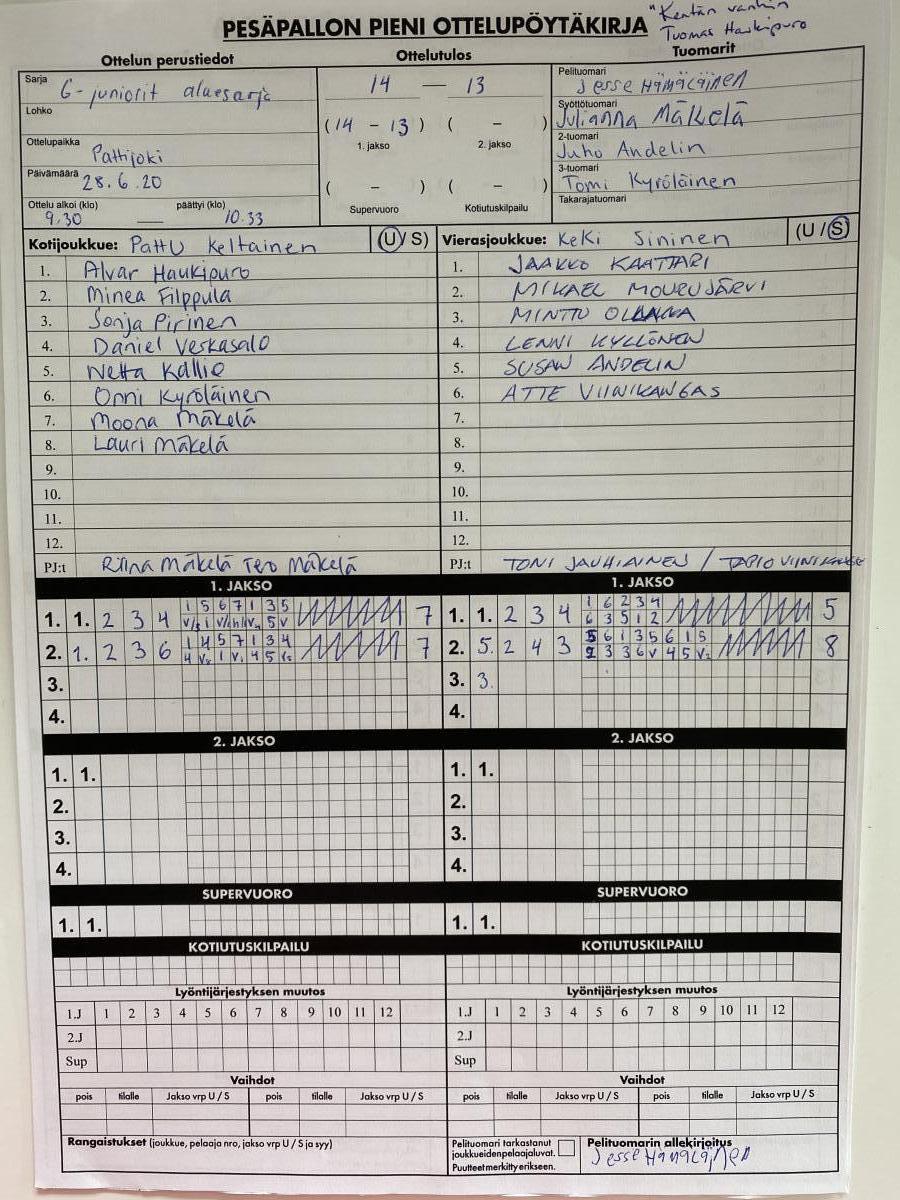 "Kentän vanhin
Tuomas Haukipuro
PESÄPALLON PIENI OTTELUPÖYTÄKIRJA
Ottelun perustiedot Ottelutulos Tuomarit
Sarja G-juniorit aluesarja
14 — 13
Pelituomari Jesse Hämäläinen
Lohko
(14 - 13) ( - )
1. jakso 2. jakso
Syöttötuomari Julianna Mäkelä
Ottelupaikka Pattijoki
2-tuomari Juho Andelin
Päivämäärä 28.6.20
( - ) ( - )
Supervuoro Kotiutuskilpailu
3-tuomari Tomi Kyröläinen
Takarajatuomari
Ottelu alkoi (klo) päättyi (klo)
9.30 — 10.33
Kotijoukkue: PattU Keltainen (U/S) Vierasjoukkue: KeKi Sininen (U/S)
1. Alvar Haukipuro 1. JAAKKO KAATTARI
2. Minea Filppula 2. MIKAEL MOURUJÄRVI
3. Sonja Pirinen 3. MINTTU
4. Daniel Veskasalo 4. LENNI KYLLÖNEN
5. Netta Kallio 5. SUSAN ANDELIN
6. Onni Kyröläinen 6. ATTE VIINIKANGAS
7. Moona Mäkelä 7.
8. Lauri Mäkelä 8.
9. 9.
10. 10.
11. 11.
12. 12.
PJ:t Riina Mäkelä Tero Mäkelä PJ:t TONI JAUHIAINEN / TAPIO
1. JAKSO 1. JAKSO
1. 1. 2 3 4 1 5 6 7 1 3 5 7 1. 1. 2 3 4 1 6 2 3 4 5
6 3 5 1 2
2. 1. 2 3 6 1 4 5 7 1 3 4 7 2. 5. 2 4 3 5 6 1 3 5 6 1 5 8
3. 3. 3.
4. 4.
2. JAKSO 2. JAKSO
1. 1. 1. 1.
2. 2.
3. 3.
4. 4.
SUPERVUORO SUPERVUORO
1. 1. 1. 1.
KOTIUTUSKILPAILU KOTIUTUSKILPAILU
Lyöntijärjestyksen muutos Lyöntijärjestyksen muutos
1.J 1 2 3 4 5 6 7 8 9 10 11 12 1.J 1 2 3 4 5 6 7 8 9 10 11 12
2.J 2.J
Sup Sup
Vaihdot Vaihdot
pois tilalle Jakso vrp U / S pois tilalle Jakso vrp U / S pois tilalle Jakso vrp U / S pois tilalle Jakso vrp U / S
Rangaistukset (joukkue, pelaaja nro, jakso vrp U / S ja syy)
Pelituomari tarkastanut
joukkueidenpelaajaluvat.
Puutteet merkitty erikseen.
Pelituomarin allekirjoitus
Jesse Hämäläinen